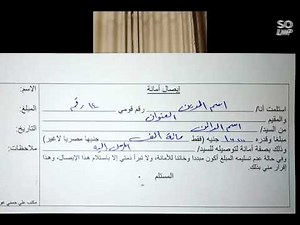 SO
LMP
إيصال أمانة
الاسم:
استلمت أنا/ اسم المدين رقم قومي ١٤ رقم
المبلغ:
والمقيم العنوان
من السيد/ اسم الدائن
التاريخ:
مبلغا وقدره جنيه (فقط مائة الف جنيها مصريا لاغير)
وذلك بصفة أمانة لتوصيله للسيد/ المرسل اليه
ملاحظات:
وفي حالة عدم تسليمه المبلغ أكون مبددا وخائنا للأمانة، ولا تبرأ ذمتي إلا باستلام هذا الإيصال، وهذا
إقرار مني بذلك.
المستلم
مكتب علي حسني